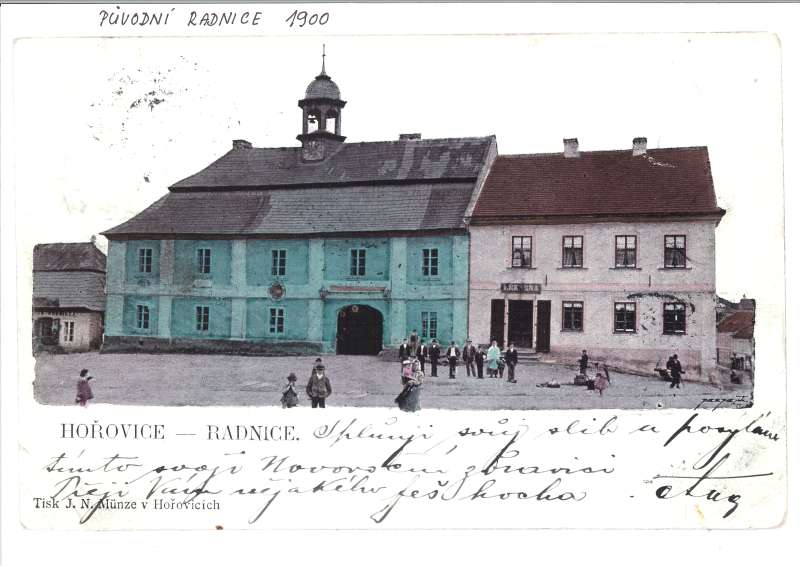 PŮVODNÍ RADNICE 1900
LEKÁRNA
HOŘOVICE — RADNICE.
Splňuji svůj slib a posýlám
tímto svojí Novoroční
Přeji Vám nějakého hocha.
Tisk J. N. Münze v Hořovicích